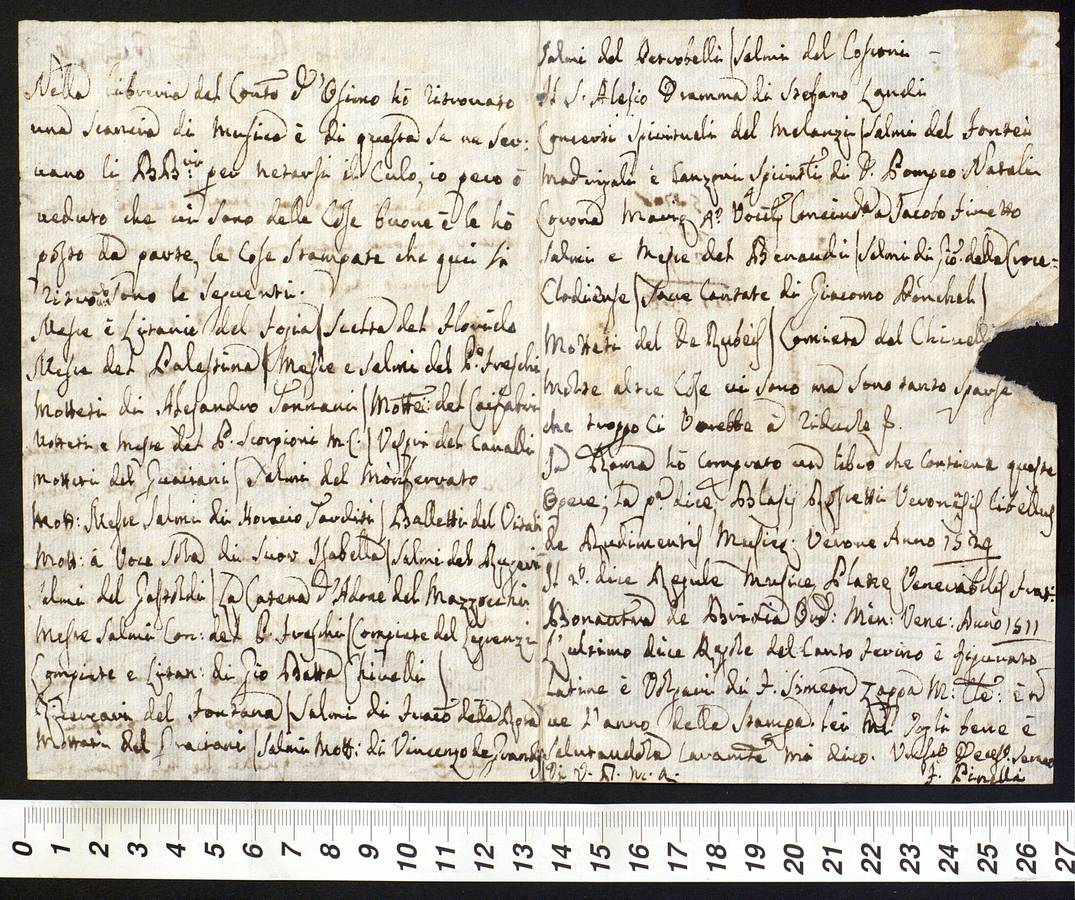 Nella libreria del Conto d'Osimo hò ritrovato
una scancia di Musica è di questa se ne ser:
uano li per netarsi il Culo, io però ò
ueduto che ui sono delle Cose buone è le hò
posto da parte, le Cose stampate che qui si
ritrouano sono le seguenti.
Messe è Litanie del Foggia / Scelta del Florido
Messe del Palestina / Messe e Salmi del P. Freschi
Motteti di Alesandro Tonnani / Motte: del Caifabri
Motteti e Messe del P. Scorpioni M.C. / Vespri del Cavalli
Motteti del Graciani / Salmi del Monferrato
Mott: Messe Salmi di Horacio Tarditi / Balletti del Vitali
Mott: à Voce Sola di Suor Isabella / Salmi del
Salmi del Gastoldi / La Catena d'Adone del Mazzocchi
Messe Salmi Con: del P. Freschi / Compiete del Legrenzi
Compiete e Litan: di Gio Batta Chinelli /
Ricercari del Fontana / Salmi di della
Mottetti del Graciani / Salmi Mott: di Vincenzo de Grandis
Salmi del Petrobelli / Salmi del Cossoni
Il S. Alesio Dramma di Stefano Landi
Concerti Spirituali del Melanzi / Salmi del Fontei
Madrigali è Canzoni Spirituali di D. Pompeo Natali
Corona Jacobo Finetto
Salmi e Messe del Benardi / Salmi di Gio: della Croce
Clodiense / Sacre Cantate di Giacomo /
Motteti del De Rubeis / Compieta del Chinelli
Molte altre Cose ui sono ma sono tanto sparse
che troppo Ci Vorebbe à
In Roma hò Comprato un libro che Contiene queste
Opere; La p.a dice, Blasij Rossetti Veronensis libellus
de Rudimentis Musices; Verone Anno 1529
Il 2.o dice Regule Musice Plane Venerabilis Frat:
Bonaventura de Brixia Ord: Min: Vene: Anno 1511
L'ultimo dice Regole del Canto Fermo è figurato
Latine è Volgari di F. Simeon Zappa M:
ue l'anno della stampa lei mi Voglia bene è
salutandola mi dico.
Di V. R. M. A.
F. Pinelli